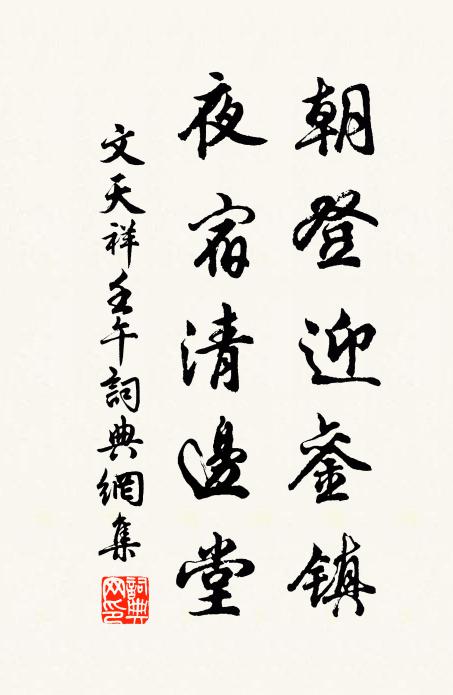 朝登迎銮鎮
夜宿清邊堂
文天祥壬午詞典網集
詞典网印